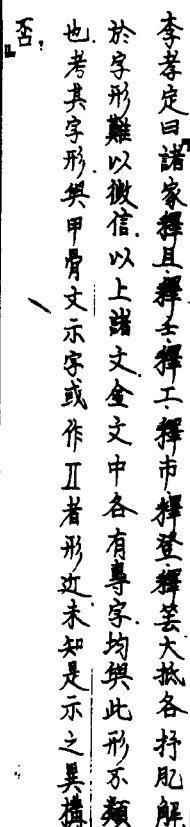 李孝定曰「諸家釋且釋壬釋工釋巿釋登釋䇂大抵各抒肊解
於字形難以徵信以上諸文金文中各有專字均與此形不類
也考其字形與甲骨文示字或作工者形近未知是示之異構
否」